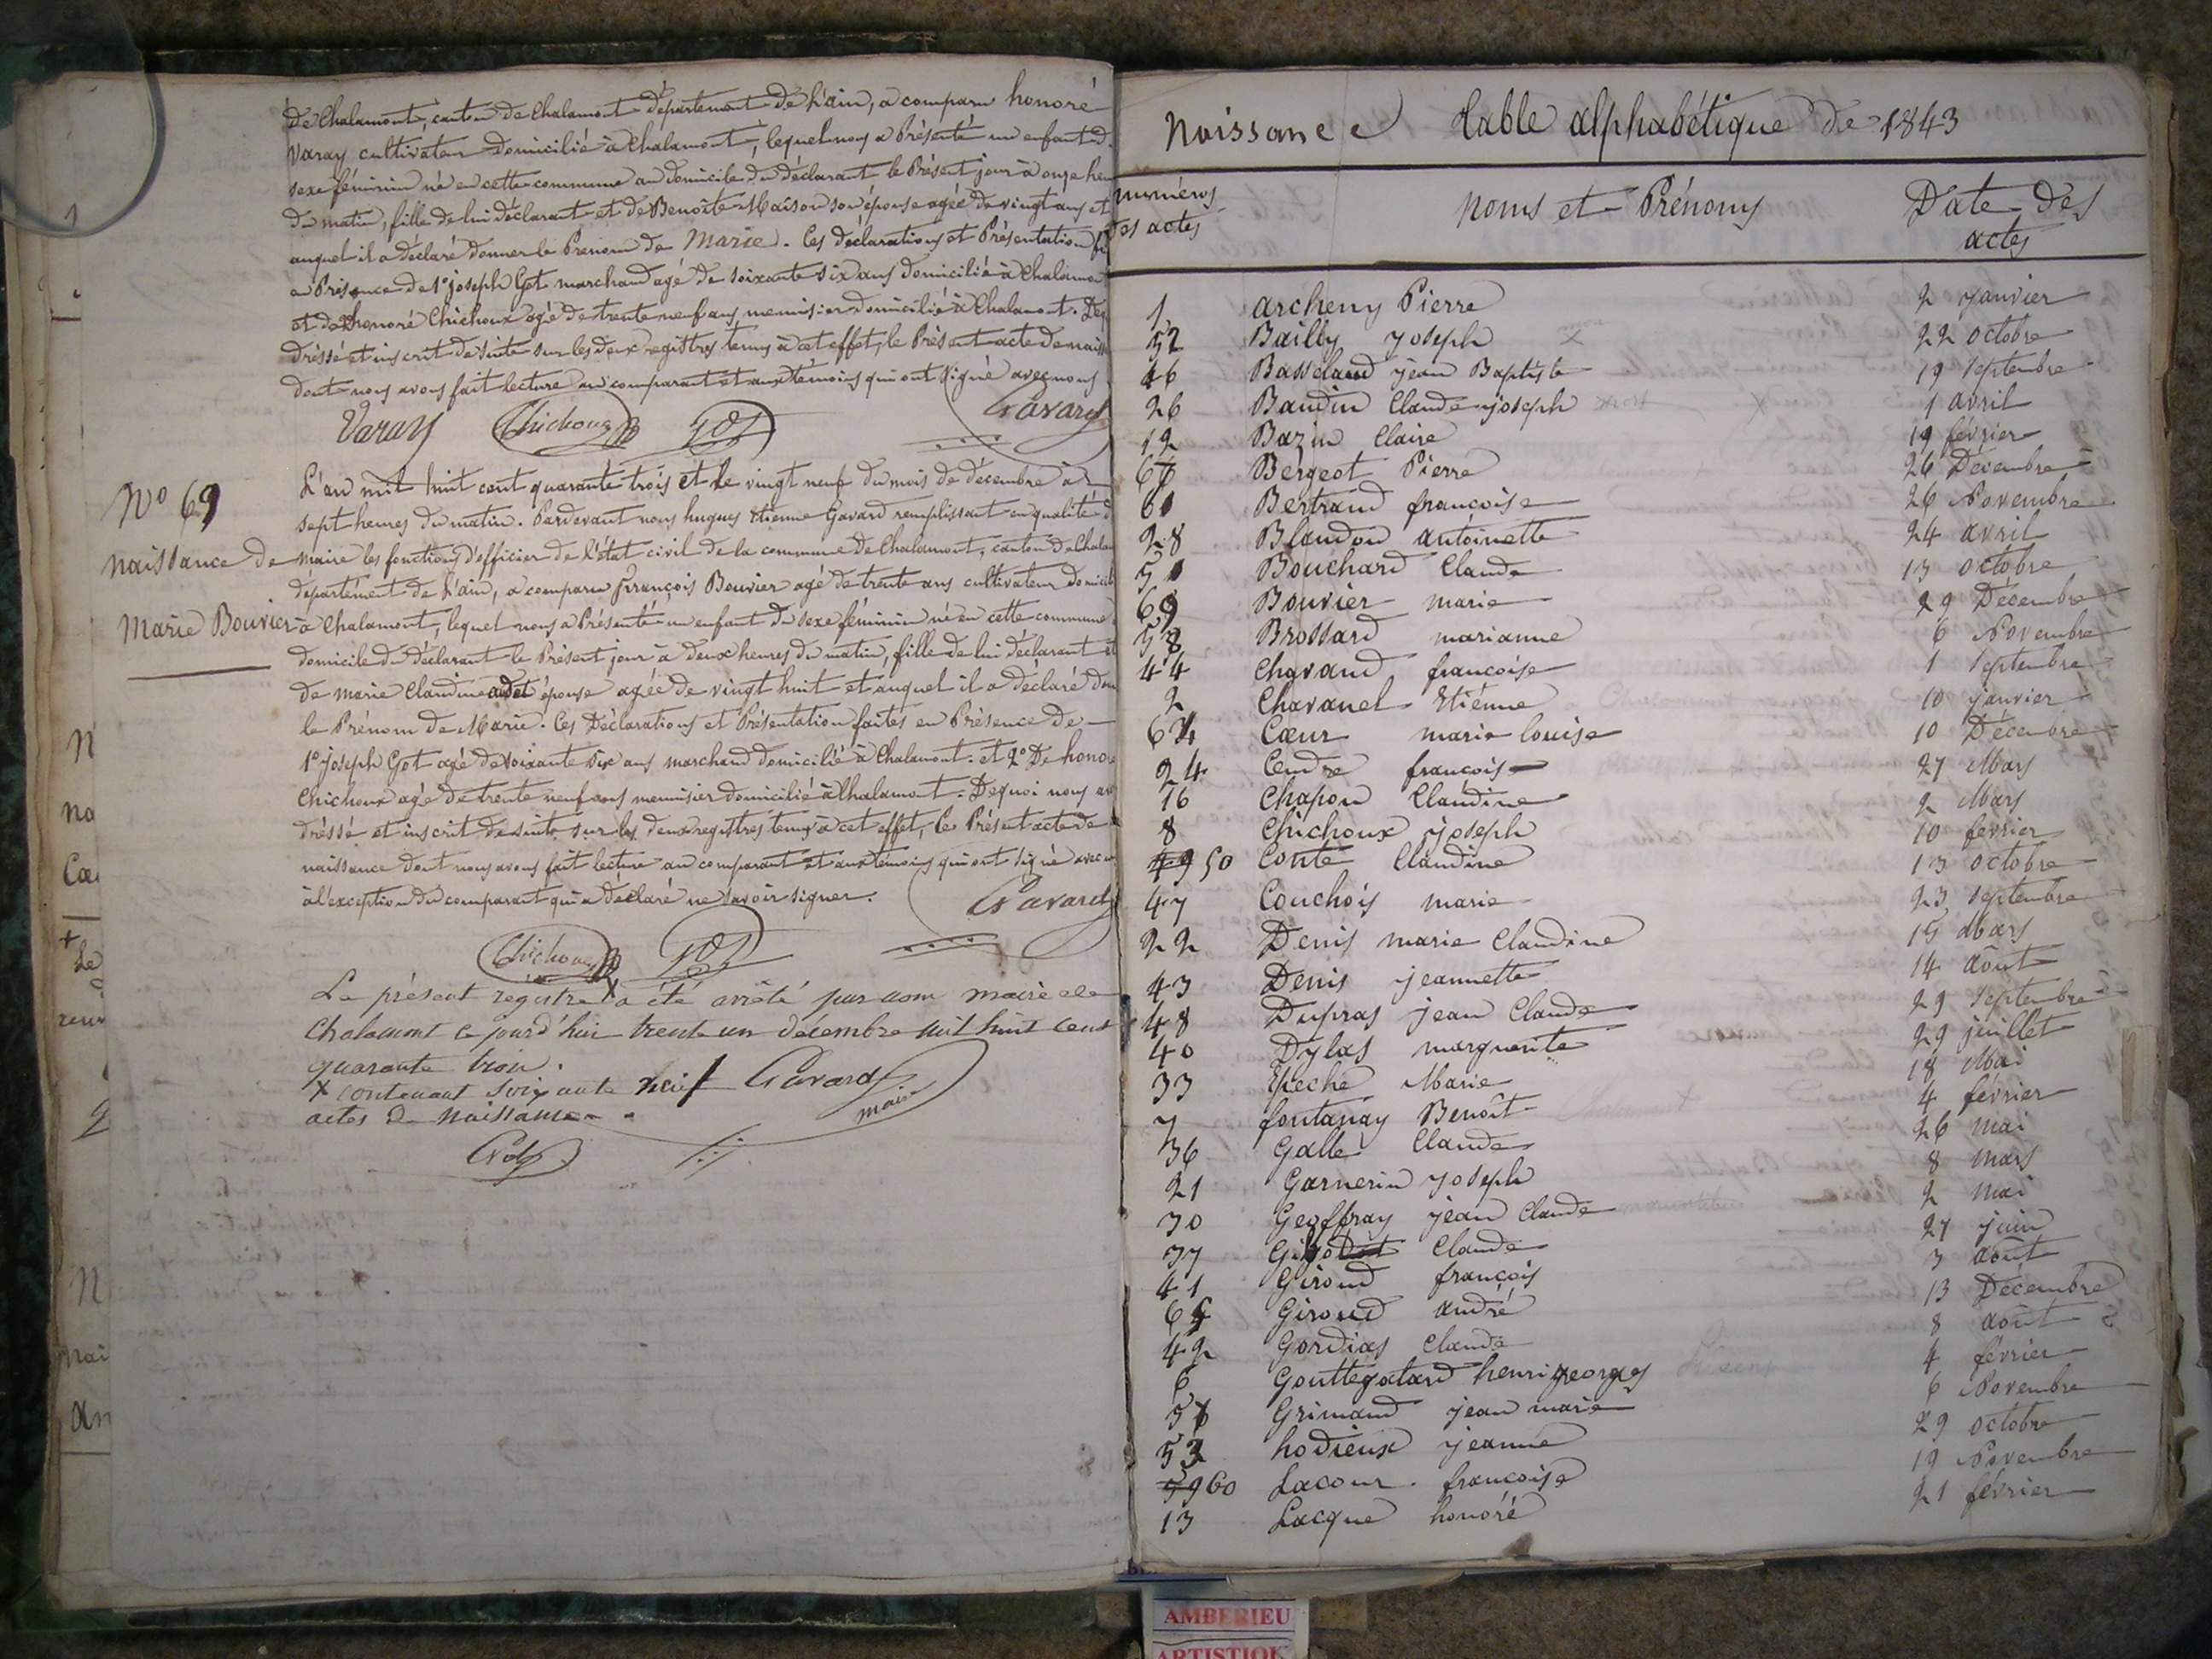 de Chalamont, canton de Chalamont département de L'ain, a comparu honoré
Varay cultivateur domicilié à Chalamont, lequel nous a Présenté un enfant d
sexe féminin né en cette commune au domicile du déclarant le Présent jour à onze heu
du matin, fille de lui déclarant et de Benoite Maison son épouse agée de vingt ans et
auquel il a déclaré donner le Prénom de Marie. Ces déclarations et Présentation f
en Présence de 1° joseph Got marchand agé de soixante six ans domicilié à Chalamon
et de honoré Chichoux agé de trente neuf ans, menuisier domicilié à Chalamont. De
dréssé et inscrit de suite sur les deux registres tenus à cet effet, le Présent acte de naiss
dont nous avons fait lecture au comparant et aux témoins qui ont signé avec nous
Varay Chichoux Got Gavard
N° 69
naissance de
Marie Bouvier
L'an mil huit cent quarante trois et le vingt neuf du mois de décembre à
sept heures du matin. Pardevant nous hugues Etienne Gavard remplissant en qualité d
maire les fonctions d'officier de l'état civil de la commune de Chalamont, canton de Chalam
département de L'ain, a comparu françois Bouvier agé de trente ans cultivateur domicil
à Chalamont, lequel nous a Présenté un enfant du sexe féminin né en cette commune
domicile du déclarant le Présent jour à deux heures du matin, fille de lui déclarant et
de marie Claudine épouse agée de vingt huit et auquel il a déclaré don
le Prénom de Marie. Ces Déclarations et Présentation faites en Présence de
1° joseph Got agé de soixante six ans marchand domicilié à Chalamont. et 2° De honor
Chichoux agé de trente neuf ans menuisier domicilié à Chalamont. De quoi nous av
dréssé et inscrit de suite sur les deux registres tenus à cet effet, le Présent acte de
naissance dont nous avons fait lecture au comparant et aux temoins qui ont signé avec
à l'exception du comparant qui a déclaré ne savoir signer.
Gavard
Chichoux Got
Le présent registre X a été arrêté par nous maire de
Chalamont ce jourd'hui trente un décembre mil huit cent
quarante trois.
X contenant soixante neuf Gavard
actes de naissance maire
Naissance Table alphabétique de 1843
numéros des actes Noms et Prénoms Date des actes
1 archeny Pierre 2 janvier
52 Bailly joseph X 22 octobre
46 Basseland jean Baptiste 19 septembre
26 Baudin Claude joseph 1 avril
12 Bazin Claire 19 février
66 Bergeot Pierre 26 Décembre
61 Bertrand françoise 26 Novembre
28 Blandon antoinette 24 avril
51 Bouchard Claude 13 octobre
69 Bouvier marie 29 Décembre
58 Brossard marianne 6 Novembre
44 Chavand françoise 1 septembre
2 Chavanel Etiénne 10 janvier
64 Cœur marie louise 10 Décembre
24 Cendre françois 27 Mars
16 Chapon Claudine 2 Mars
8 Chichoux joseph 10 février
49 50 Conte Claudine 13 octobre
47 Couchois marie 23 septembre
22 Denis marie Claudine 15 Mars
43 Denis jeannette 14 août
48 Dupras jean Claude 29 septembre
40 Dylas marguerite 29 juillet
33 Epeche Marie 18 Mai
7 fontanay Benoît 4 février
36 Gallé Claude 26 mai
21 Garnerin joseph 8 mars
30 Geoffray jean Claude 2 mai
37 Claude 27 juin
41 Giroud françois 3 août
65 Giroud andré 13 Décembre
42 Gordias Claude 8 août
6 Gouttegatard henri georges 4 février
57 Grimand jean marie 6 Novembre
53 hodieux jeanne 29 octobre
59 60 Lacour françoise 19 Novembre
13 Lacque honoré 21 février
AMBERIEU
ARTISTIQ